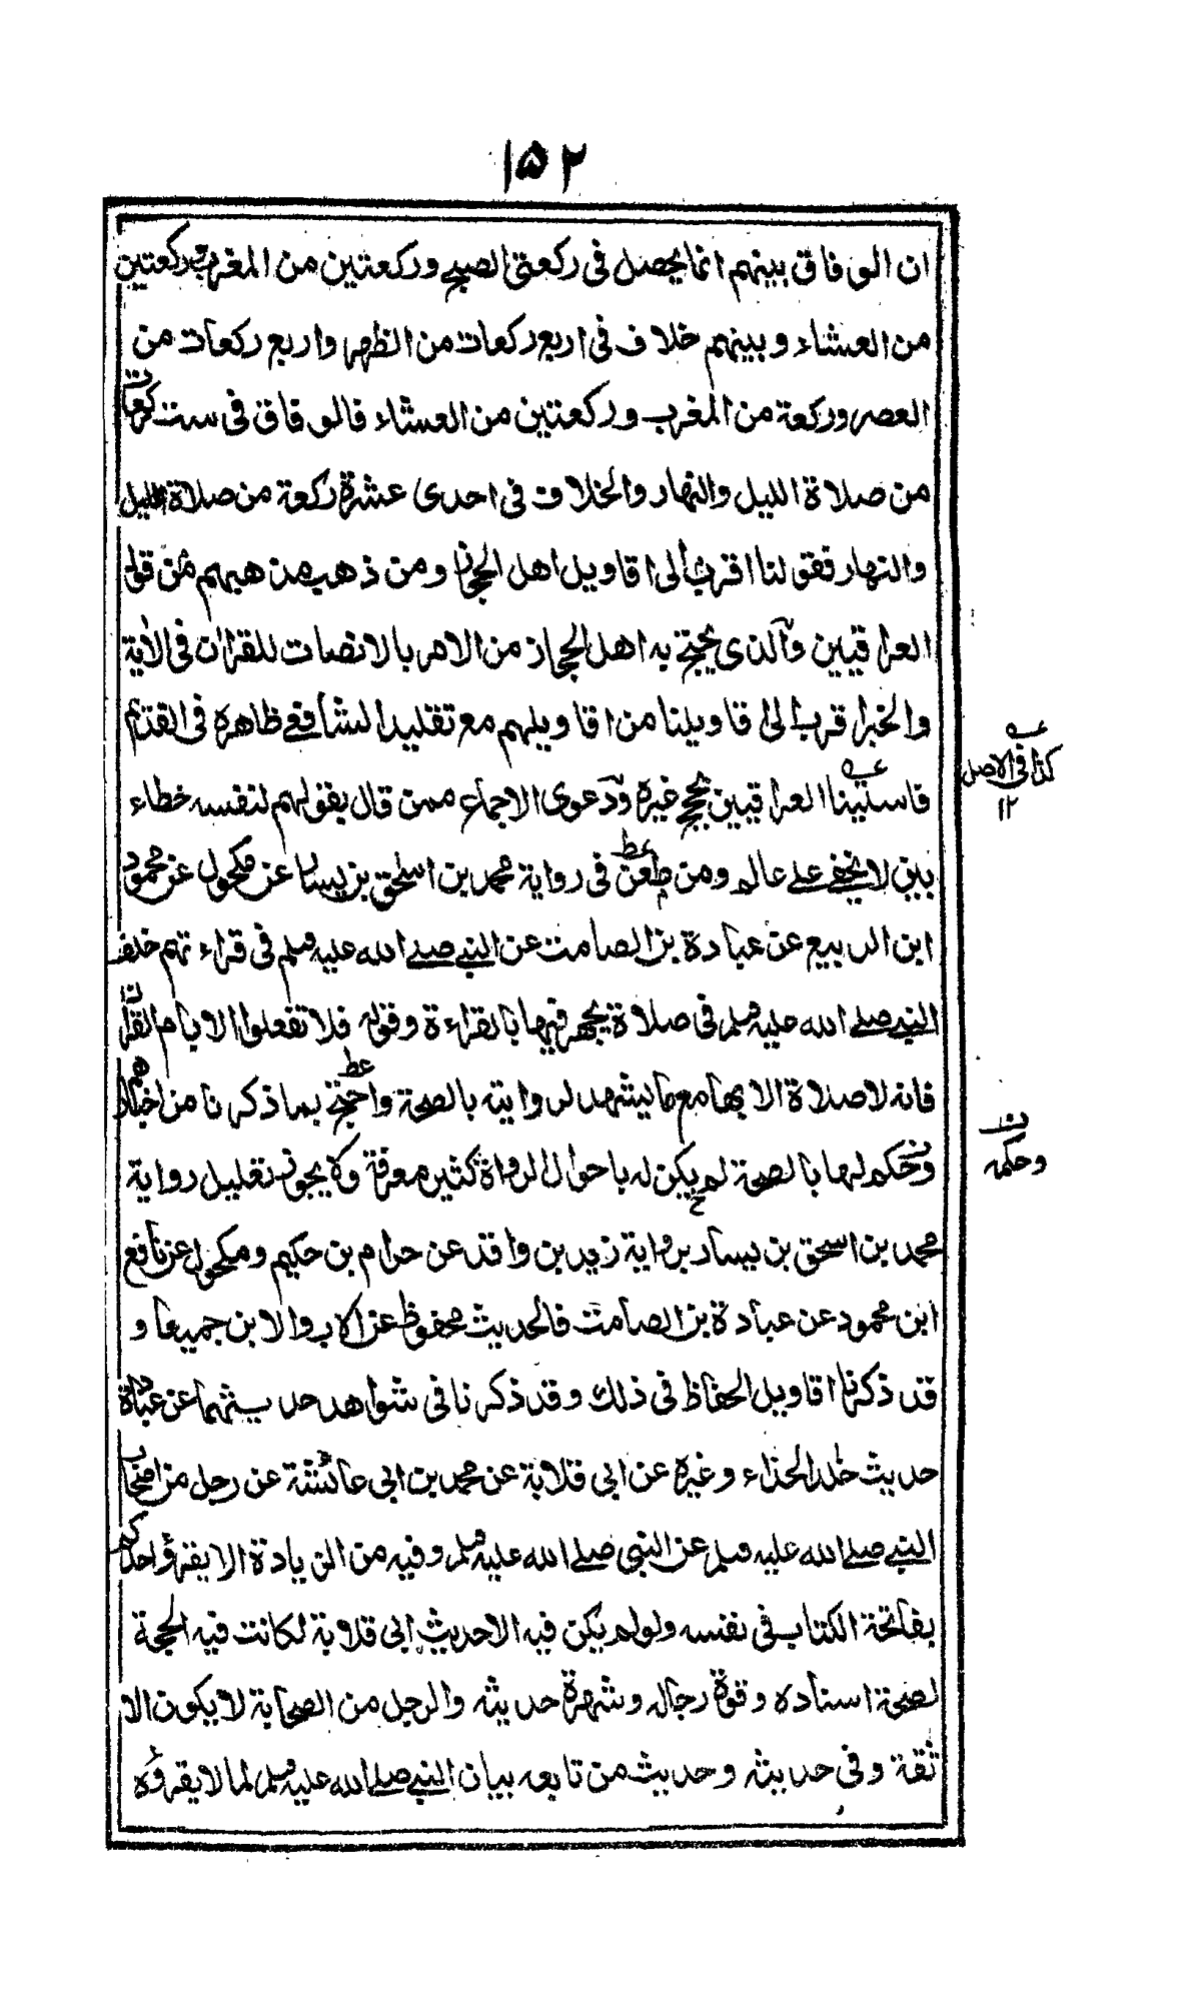 ١٥٢
ان الوفاق بينهم انما يحصل فى ركعتى الصبح وركعتين من المغرب وركعتين
من العشاء وبينهم خلاف فى اربع ركعات من الظهر واربع ركعات من
العصر وركعة من المغرب وركعتين من العشاء فالوفاق فى ست ركعات
من صلاة الليل والنهار والخلاف فى احدى عشرة ركعة من صلاة الليل
والنهار فقولنا اقرب الى اقاويل اهل الحجاز ومن ذهب مذهبهم من قول
العراقيين والذى يحتج به اهل الحجاز من الامر بالانصات للقران فى الأية
والخبر اقرب الى اقاويلنا من اقاويلهم مع تقليد الشافعى ظاهره فى القديم
العراقيين بحجج غيره ودعوى الاجماع ممن قال بقولهم لنفسه خطاء
كذا فى الاصل
١٢
بين لا يخفى على عالم ومن طعن فى رواية محمد بن اسحق بن يسار عن مكحول عن محمود
ابن الربيع عن عبادة بن الصامت عن النبى صلى الله عليه وسلم فى قراءتهم خلف
النبى صلى الله عليه وسلم فى صلاة يجهر فيها بالقراءة وقوله فلا تفعلوا الا بام القرآن
فانه لا صلاة الا بها مع ما يشهد لروايته بالصحة واحتج بما ذكرنا من
وحكم لها بالصحة لم يكن له باحوال الرواة كثير معرفة ولا يجوز تعليل رواية
وحكمه
محمد بن اسحق بن يسار برواية زيد بن واقد عن حرام بن حكيم ومكحول عن نافع
ابن محمود عن عبادة بن الصامت فالحديث محفوظ عن الاب والابن جميعا و
قد ذكرنا اقاويل الحفاظ فى ذلك وقد ذكرنا فى شواهد حديثهما عن عبادة
حديث خالد الحذاء وغيره عن ابى قلابة عن محمد بن ابى عائشة عن رجل من اصحاب
النبى صلى الله عليه وسلم عن النبى صلى الله عليه وسلم وفيه من الزيادة الا يقرؤ احدكم
بفاتحة الكتاب فى نفسه ولو لم يكن فيه الا حديث ابى قلابة لكانت فيه الحجة
لصحة اسناده وقوة رجاله وشهرة حديثه والرجل من الصحابة لا يكون الا
ثقة وفى حديثه وحديث من تابعه بيان النبى صلى الله عليه وسلم لما لا يقرؤه